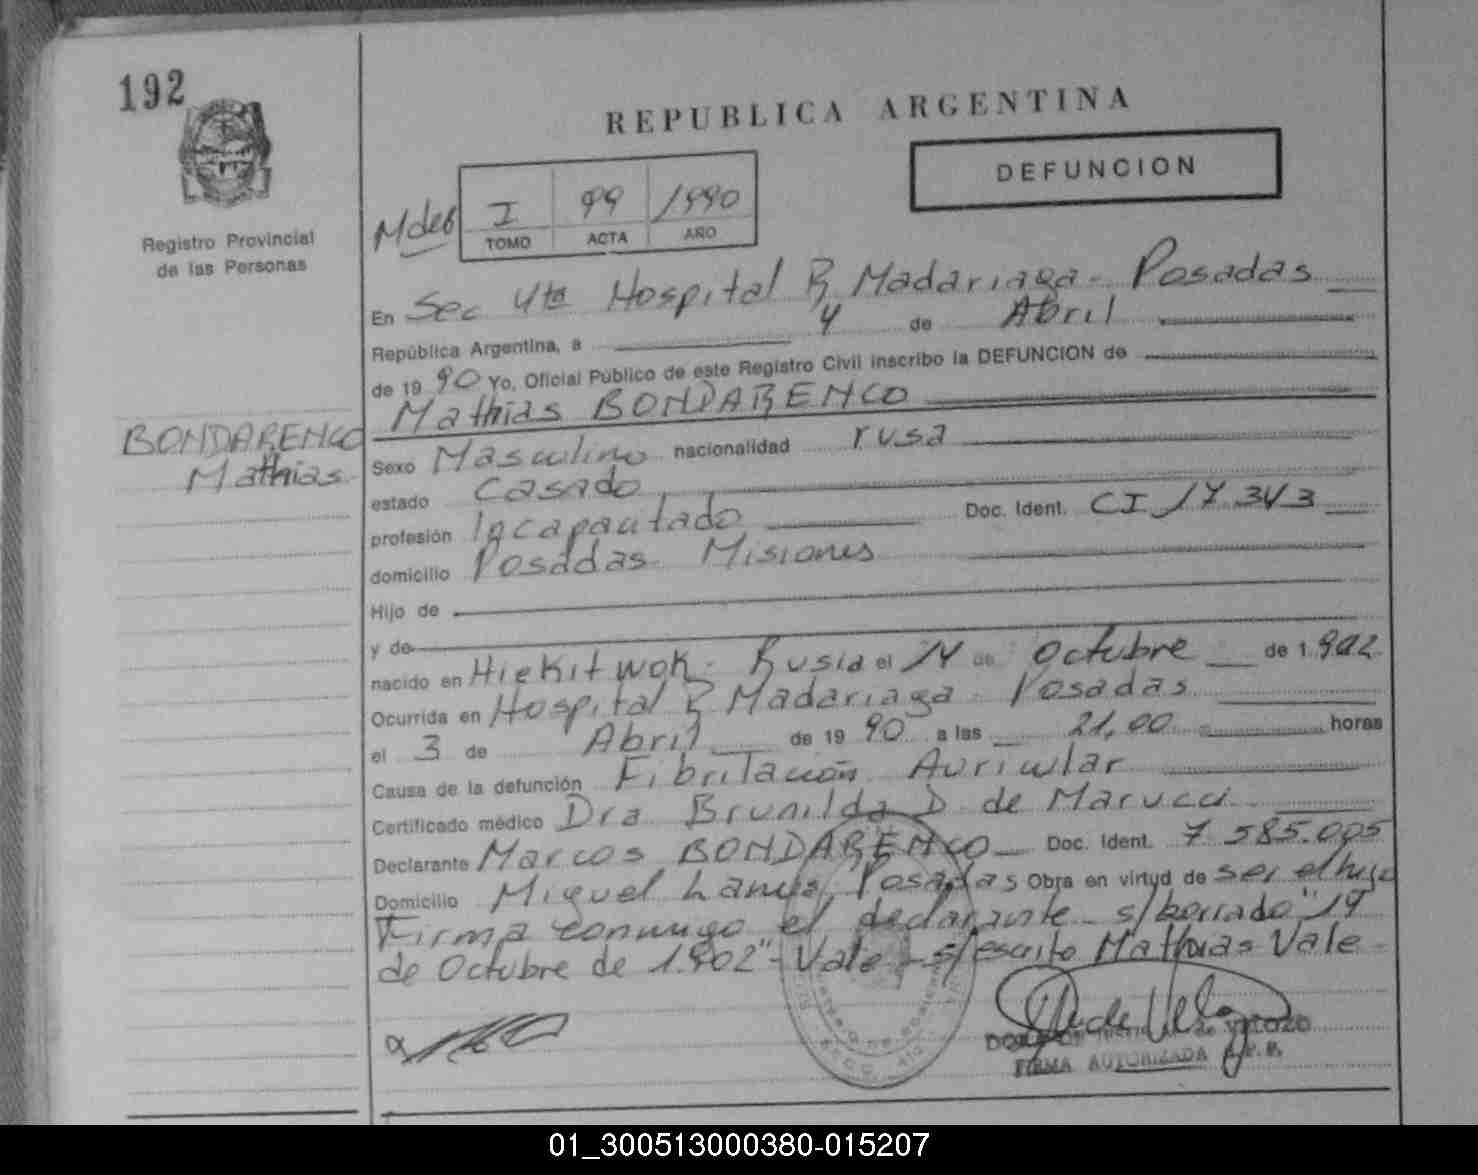 192
REPUBLICA ARGENTINA
DEFUNCION
Registro Provincial
de las Personas
I 99 1990
TOMO ACTA AÑO
En Sec 4ta Hospital R Madariaga - Posadas
República Argentina, a 4 de Abril
de 1990 Yo, Oficial Público de este Registro Civil inscribo la DEFUNCION de
Mathias BONDARENCO
BONDARENCO
Mathias
Sexo Masculino nacionalidad rusa
estado Casado
profesión Incapacitado Doc. Ident. CI 17.343
domicilio Posadas Misiones
Hijo de
y de
nacido en Hiekitwok - Rusia el 14 de Octubre de 1.902
Ocurrida en Hospital R Madariaga - Posadas
el 3 de Abril de 1990 a las 21,00 horas
Causa de la defunción Fibrilación Auricular
Certificado médico Dra Brunilda D. de Marucci
Declarante Marcos BONDARENCO Doc. Ident. 7.585.005
Domicilio Miguel Lanus, Posadas Obra en virtud de ser el hijo
Firma conmigo el declarante - s/borrado "19
de Octubre de 1.902" - Vale - s/escrito Mathias Vale
FIRMA AUTORIZADA
01_300513000380-015207